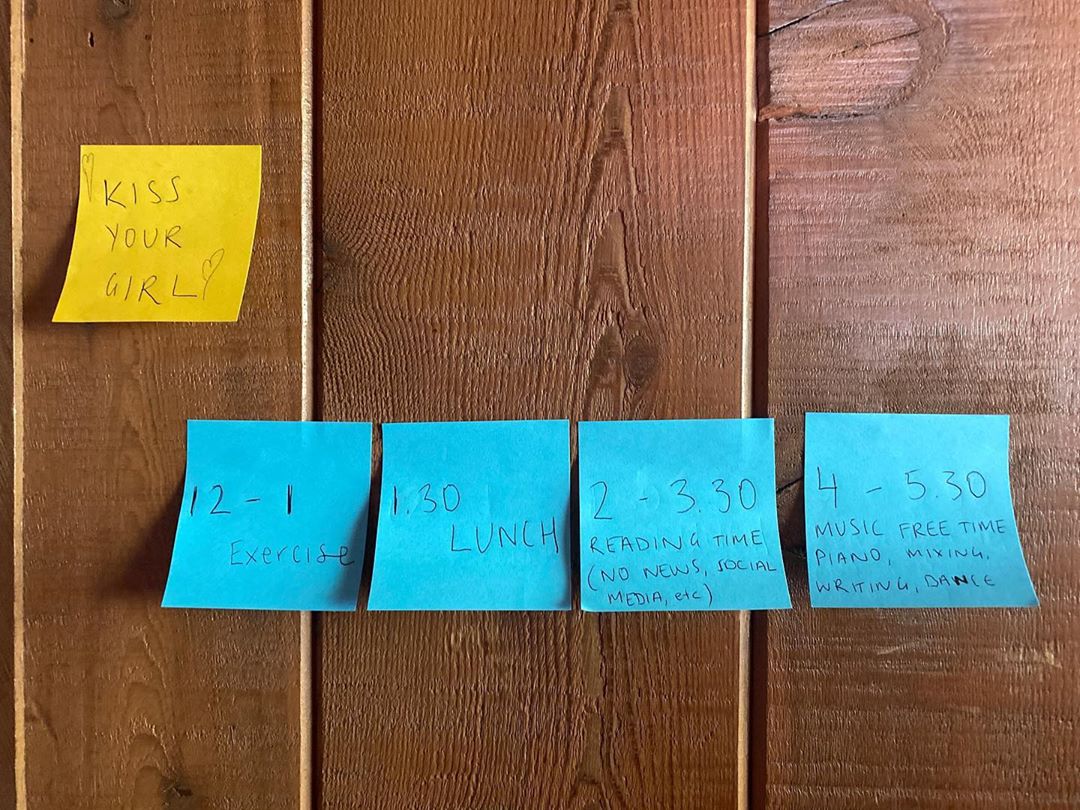 KISS
YOUR
GIRL
12 - 1
Exercise
1.30
LUNCH
2 - 3.30
READING TIME
(NO NEWS, SOCIAL
MEDIA, etc)
4 - 5.30
MUSIC FREE TIME
PIANO, MIXING,
WRITING, DANCE